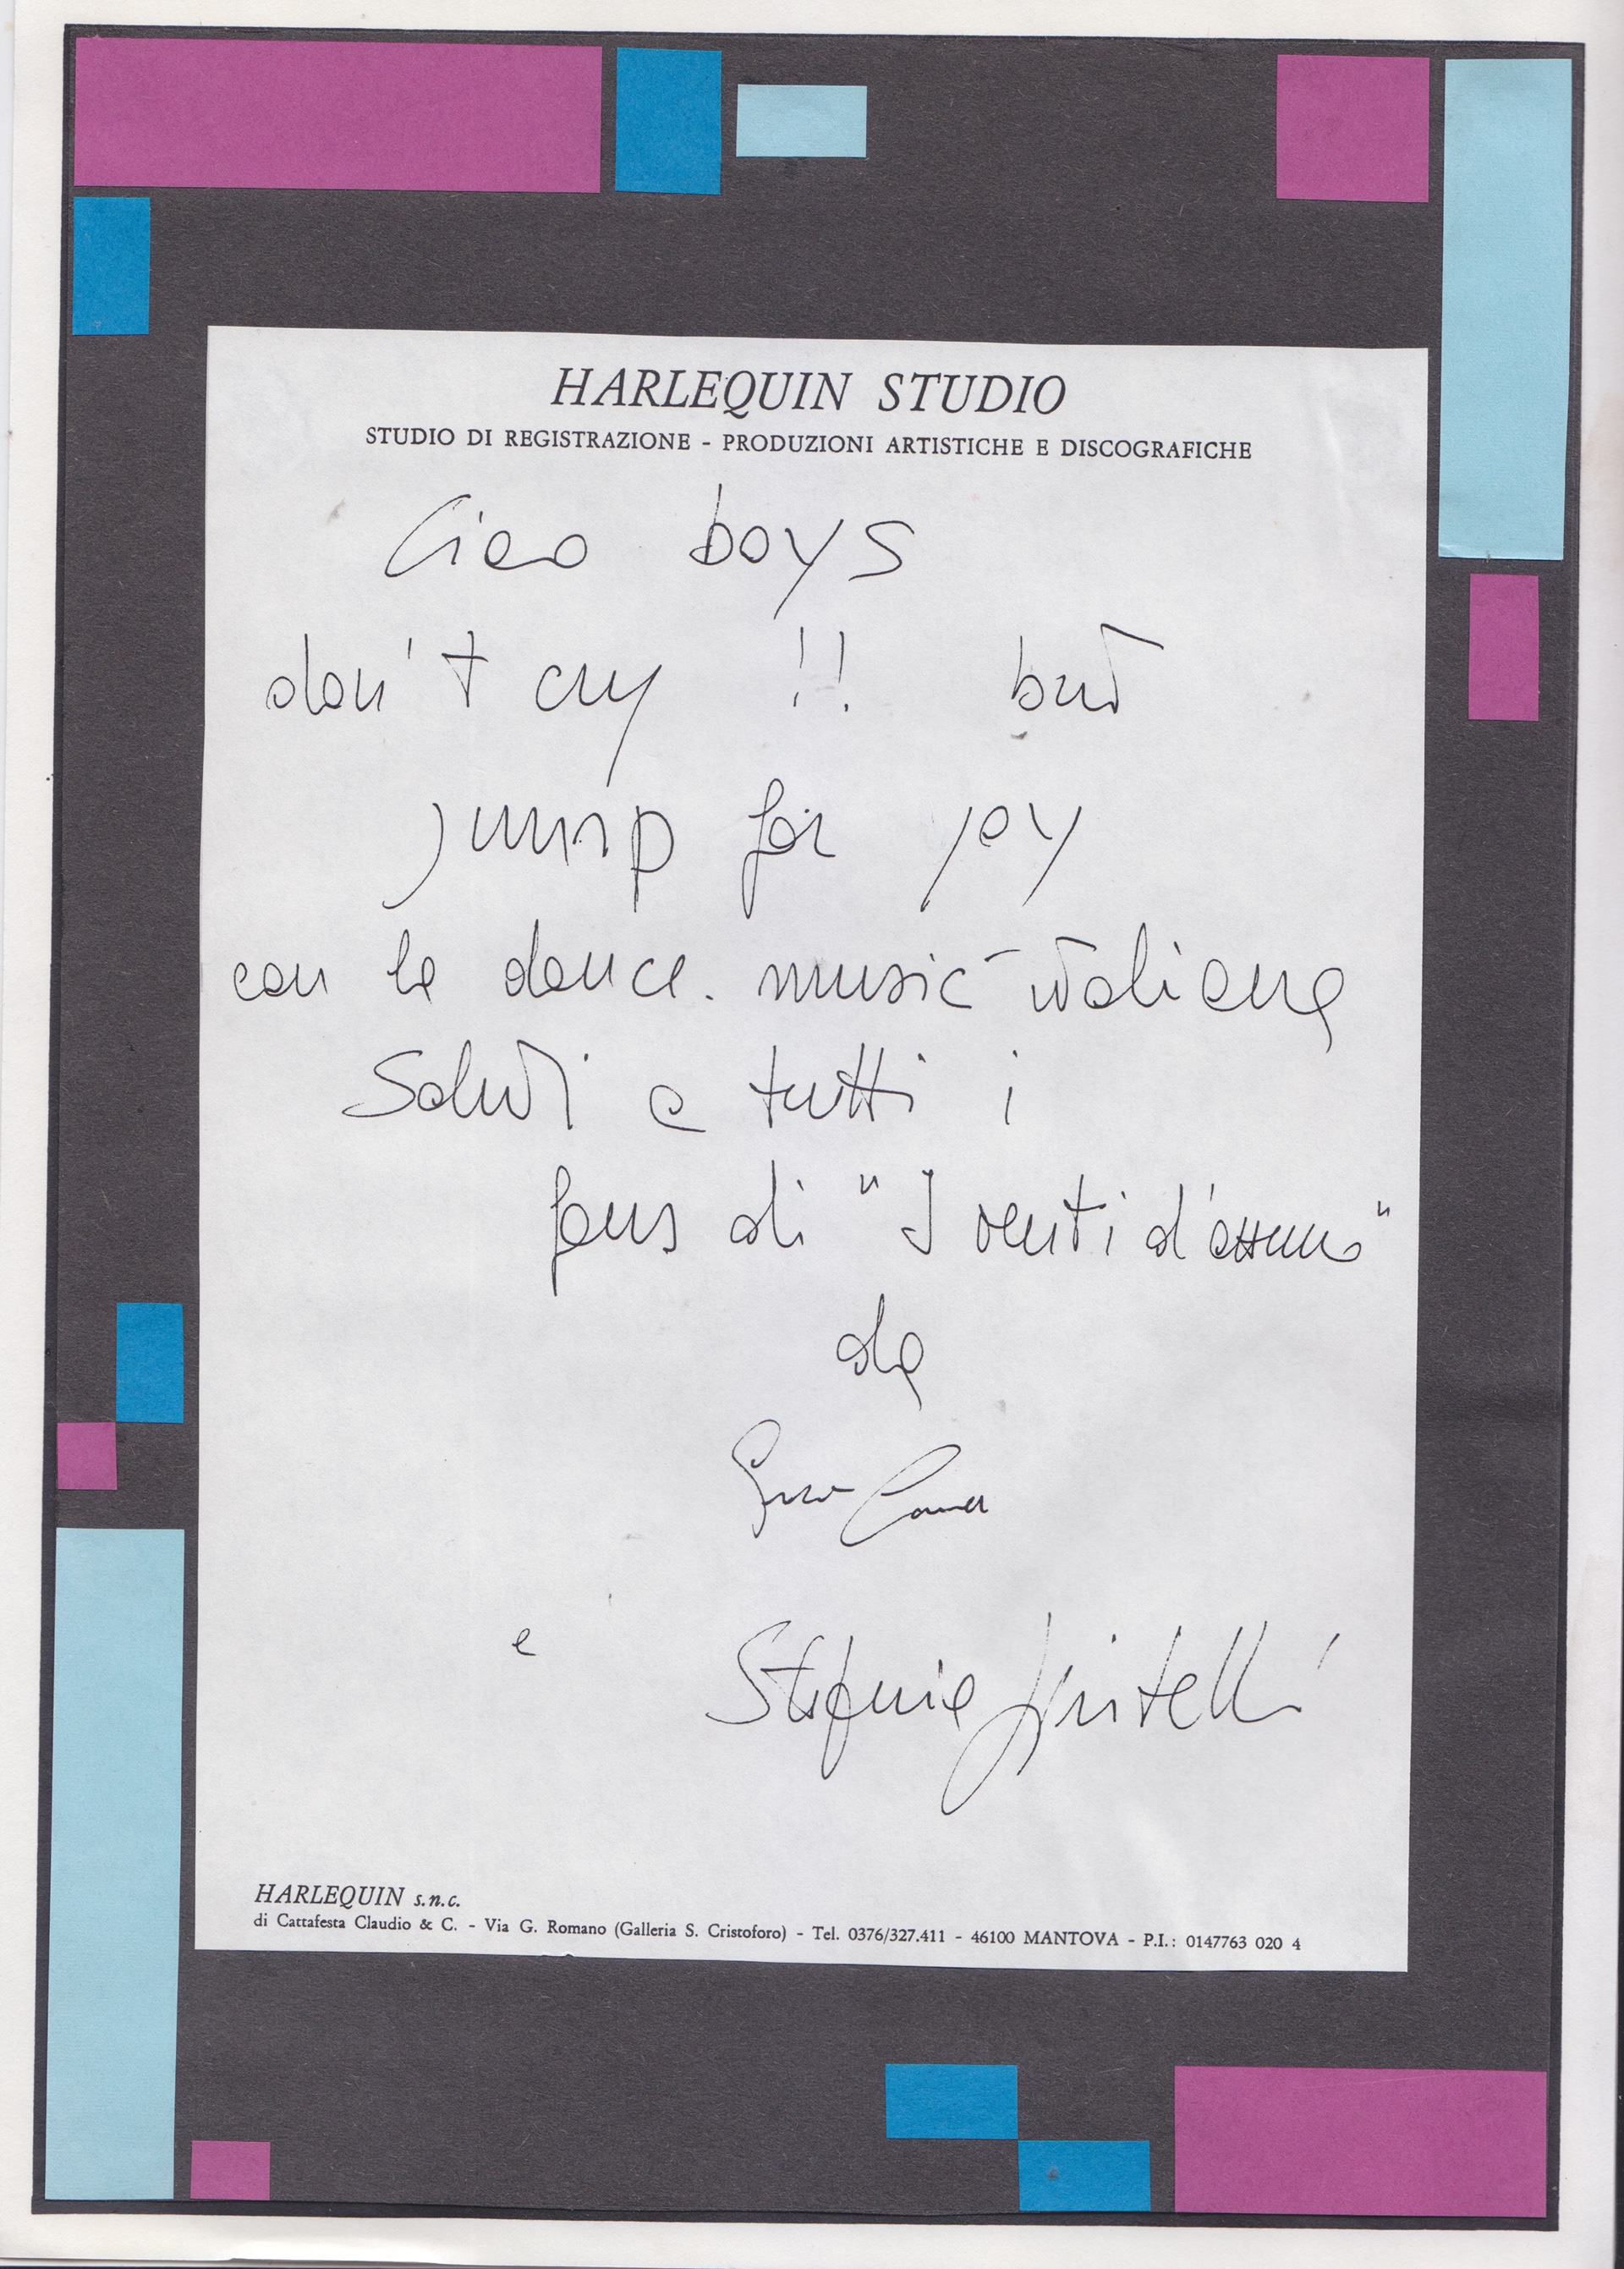 HARLEQUIN STUDIO
STUDIO DI REGISTRAZIONE - PRODUZIONI ARTISTICHE E DISCOGRAFICHE
Ciao boys
don't cry !! but
jump for joy
con la dance-music italiana
Saluti a tutti i
fans di "I venti d'azzurro"
da
e Stefania
HARLEQUIN s.n.c.
di Cattafesta Claudio & C. - Via G. Romano (Galleria S. Cristoforo) - Tel. 0376/327.411 - 46100 MANTOVA - P.I.: 0147763 020 4